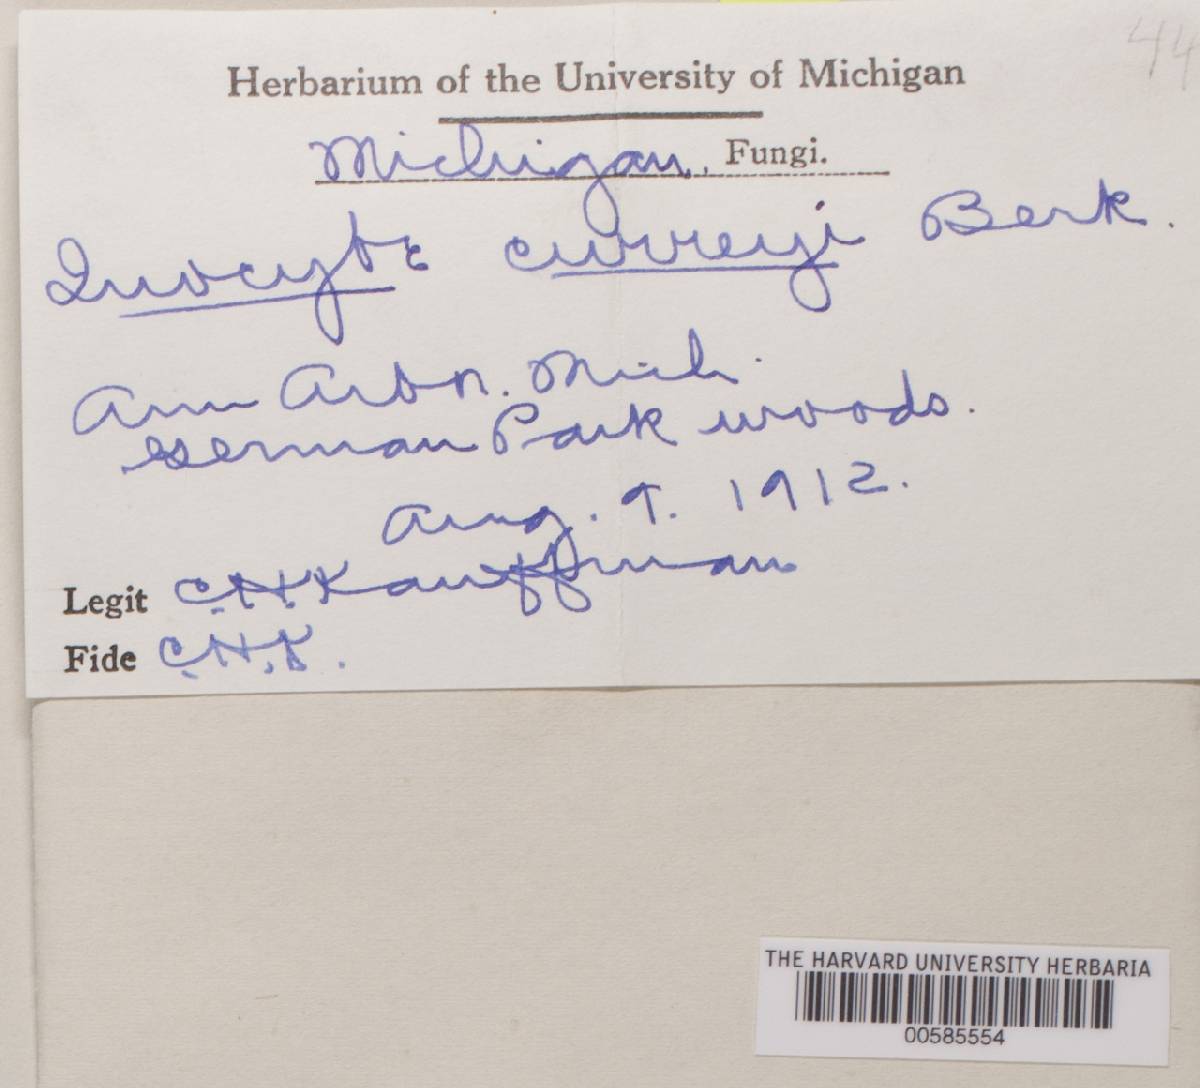 44
Herbarium of the University of Michigan
Michigan, Fungi.
Inocybe curreyi Berk.
Ann Arbor. Mich.
German Park woods.
Aug. 9. 1912.
Legit C.H. Kauffman
Fide C.H.K.
THE HARVARD UNIVERSITY HERBARIA
00585554